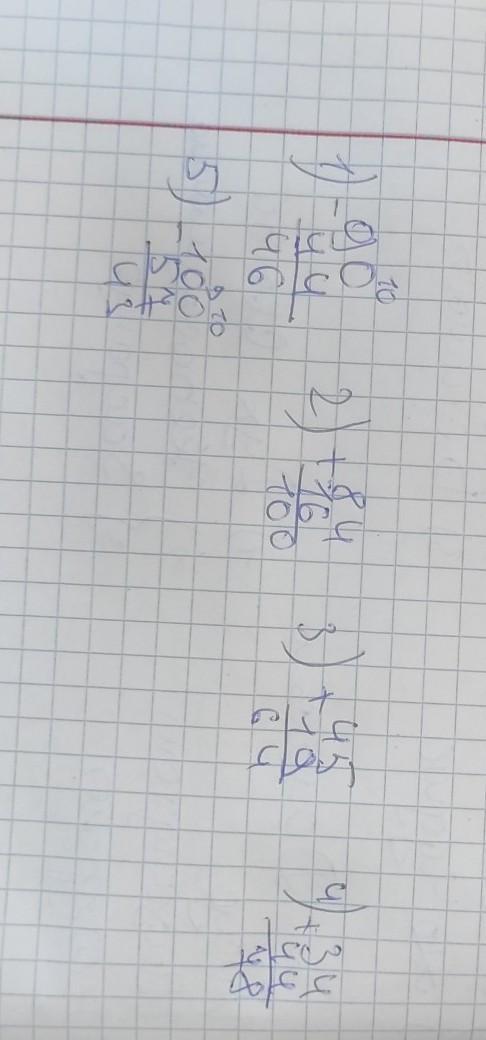 10
1) - 90
44
46
2) + 84
16
100
3) + 45
19
64
4) + 34
44
78
9 10
5) - 100
57
43